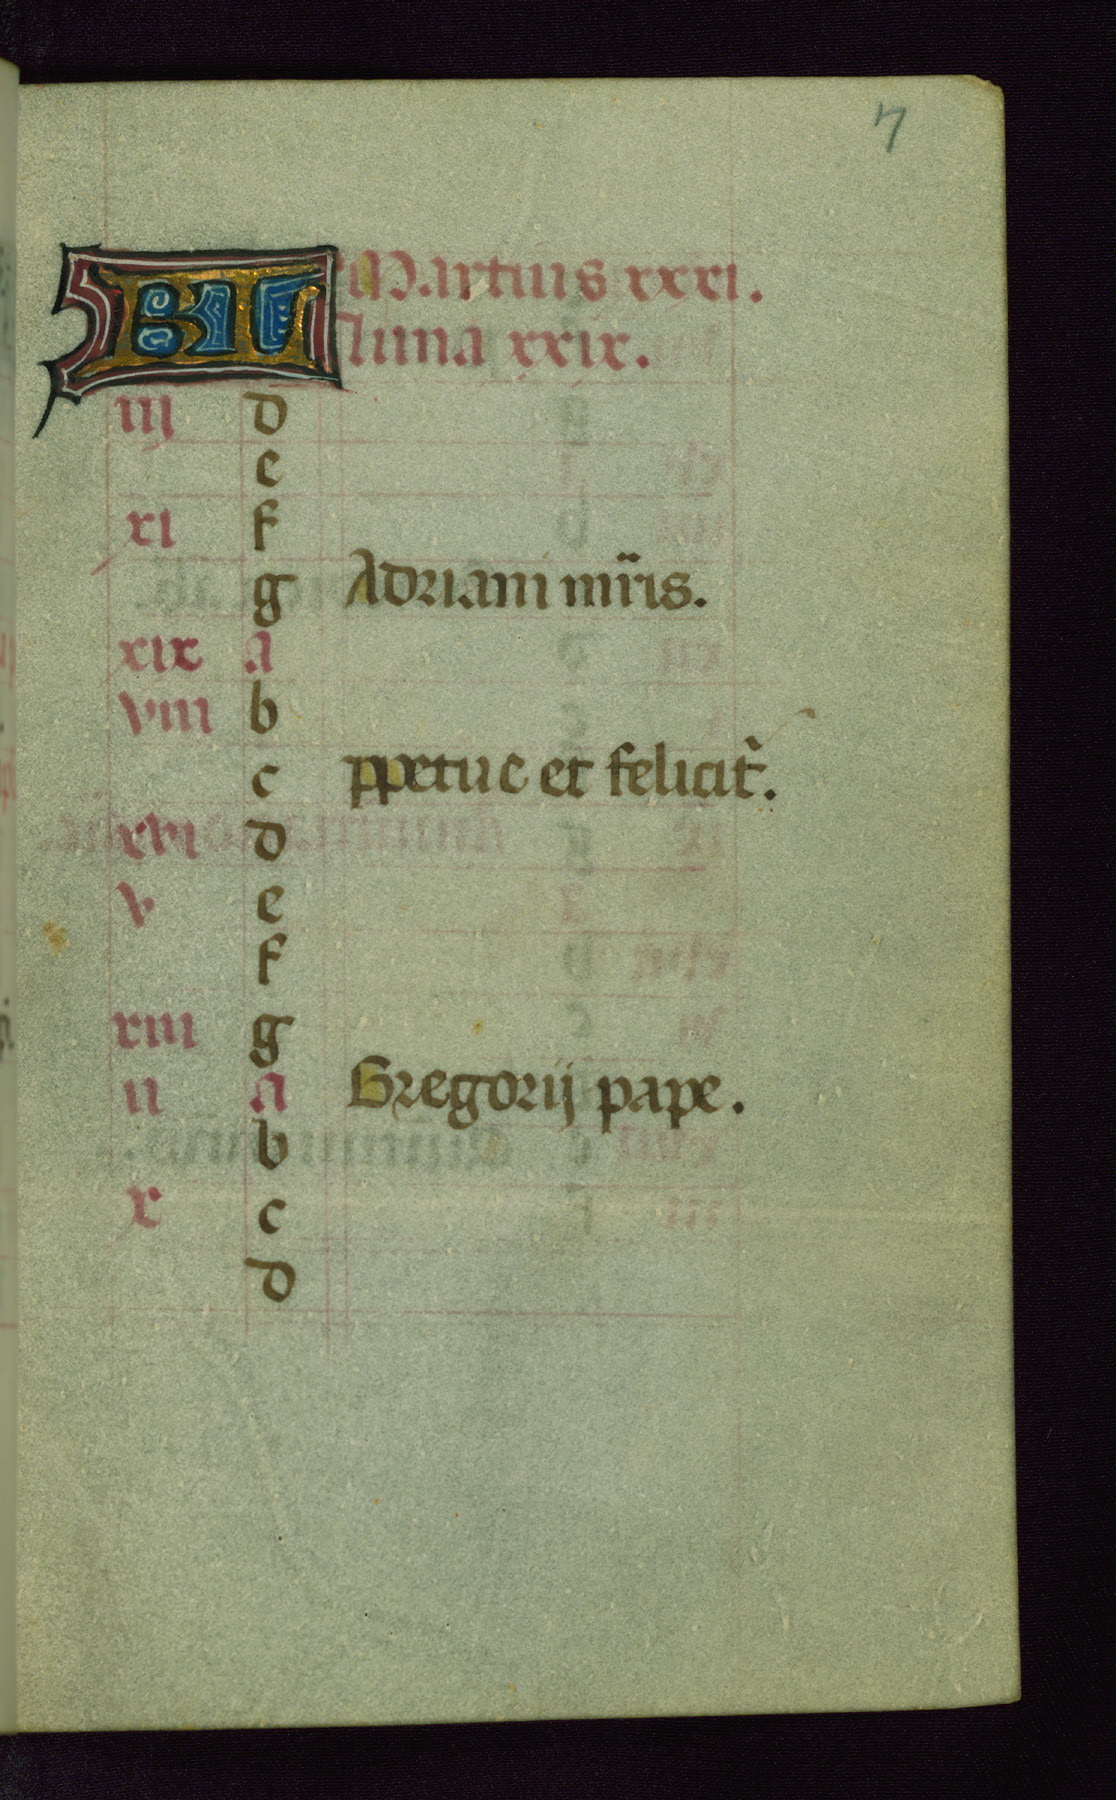 7
KL Martius xxxi.
luna xxix.
iij d
e
xi f
g Adriani mr̃is.
xix a
viii b
c ppetue et felicit̃.
xvi d
v e
f
xiii g
ii a Gregorij pape.
b
x c
d